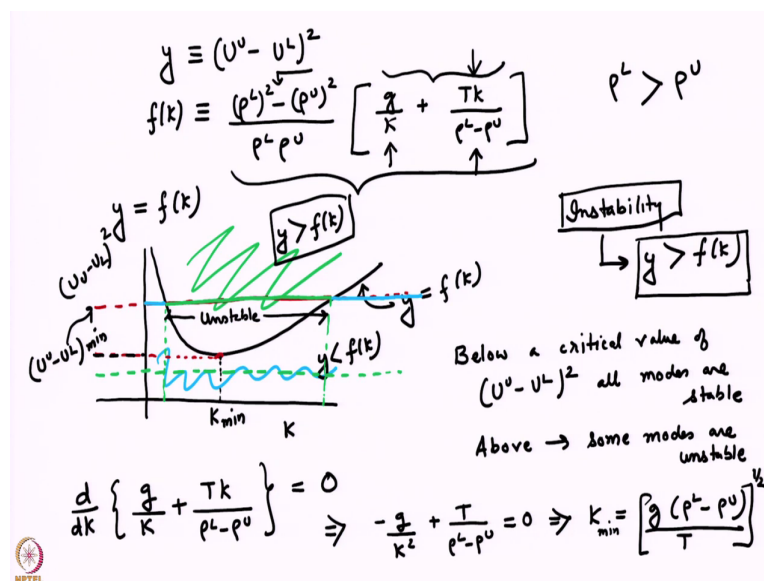 y ≡ (U^U - U^L)^2
f(k) ≡ (ρ^L)^2 - (ρ^U)^2 / ρ^L ρ^U [ g/K + Tk/ρ^L-ρ^U ]
ρ^L > ρ^U
y = f(k)
y > f(k)
Instability
y > f(k)
(U^U-U^L)^2
unstable
y = f(k)
(U^U-U^L)^2 min
y < f(k)
K min
K
Below a critical value of
(U^U - U^L)^2 all modes are
stable
Above → some modes are
unstable
d/dK { g/K + Tk/ρ^L-ρ^U } = 0
⇒ -g/K^2 + T/ρ^L-ρ^U = 0 ⇒ K min = [ g (ρ^L - ρ^U) / T ]^1/2
NPTEL